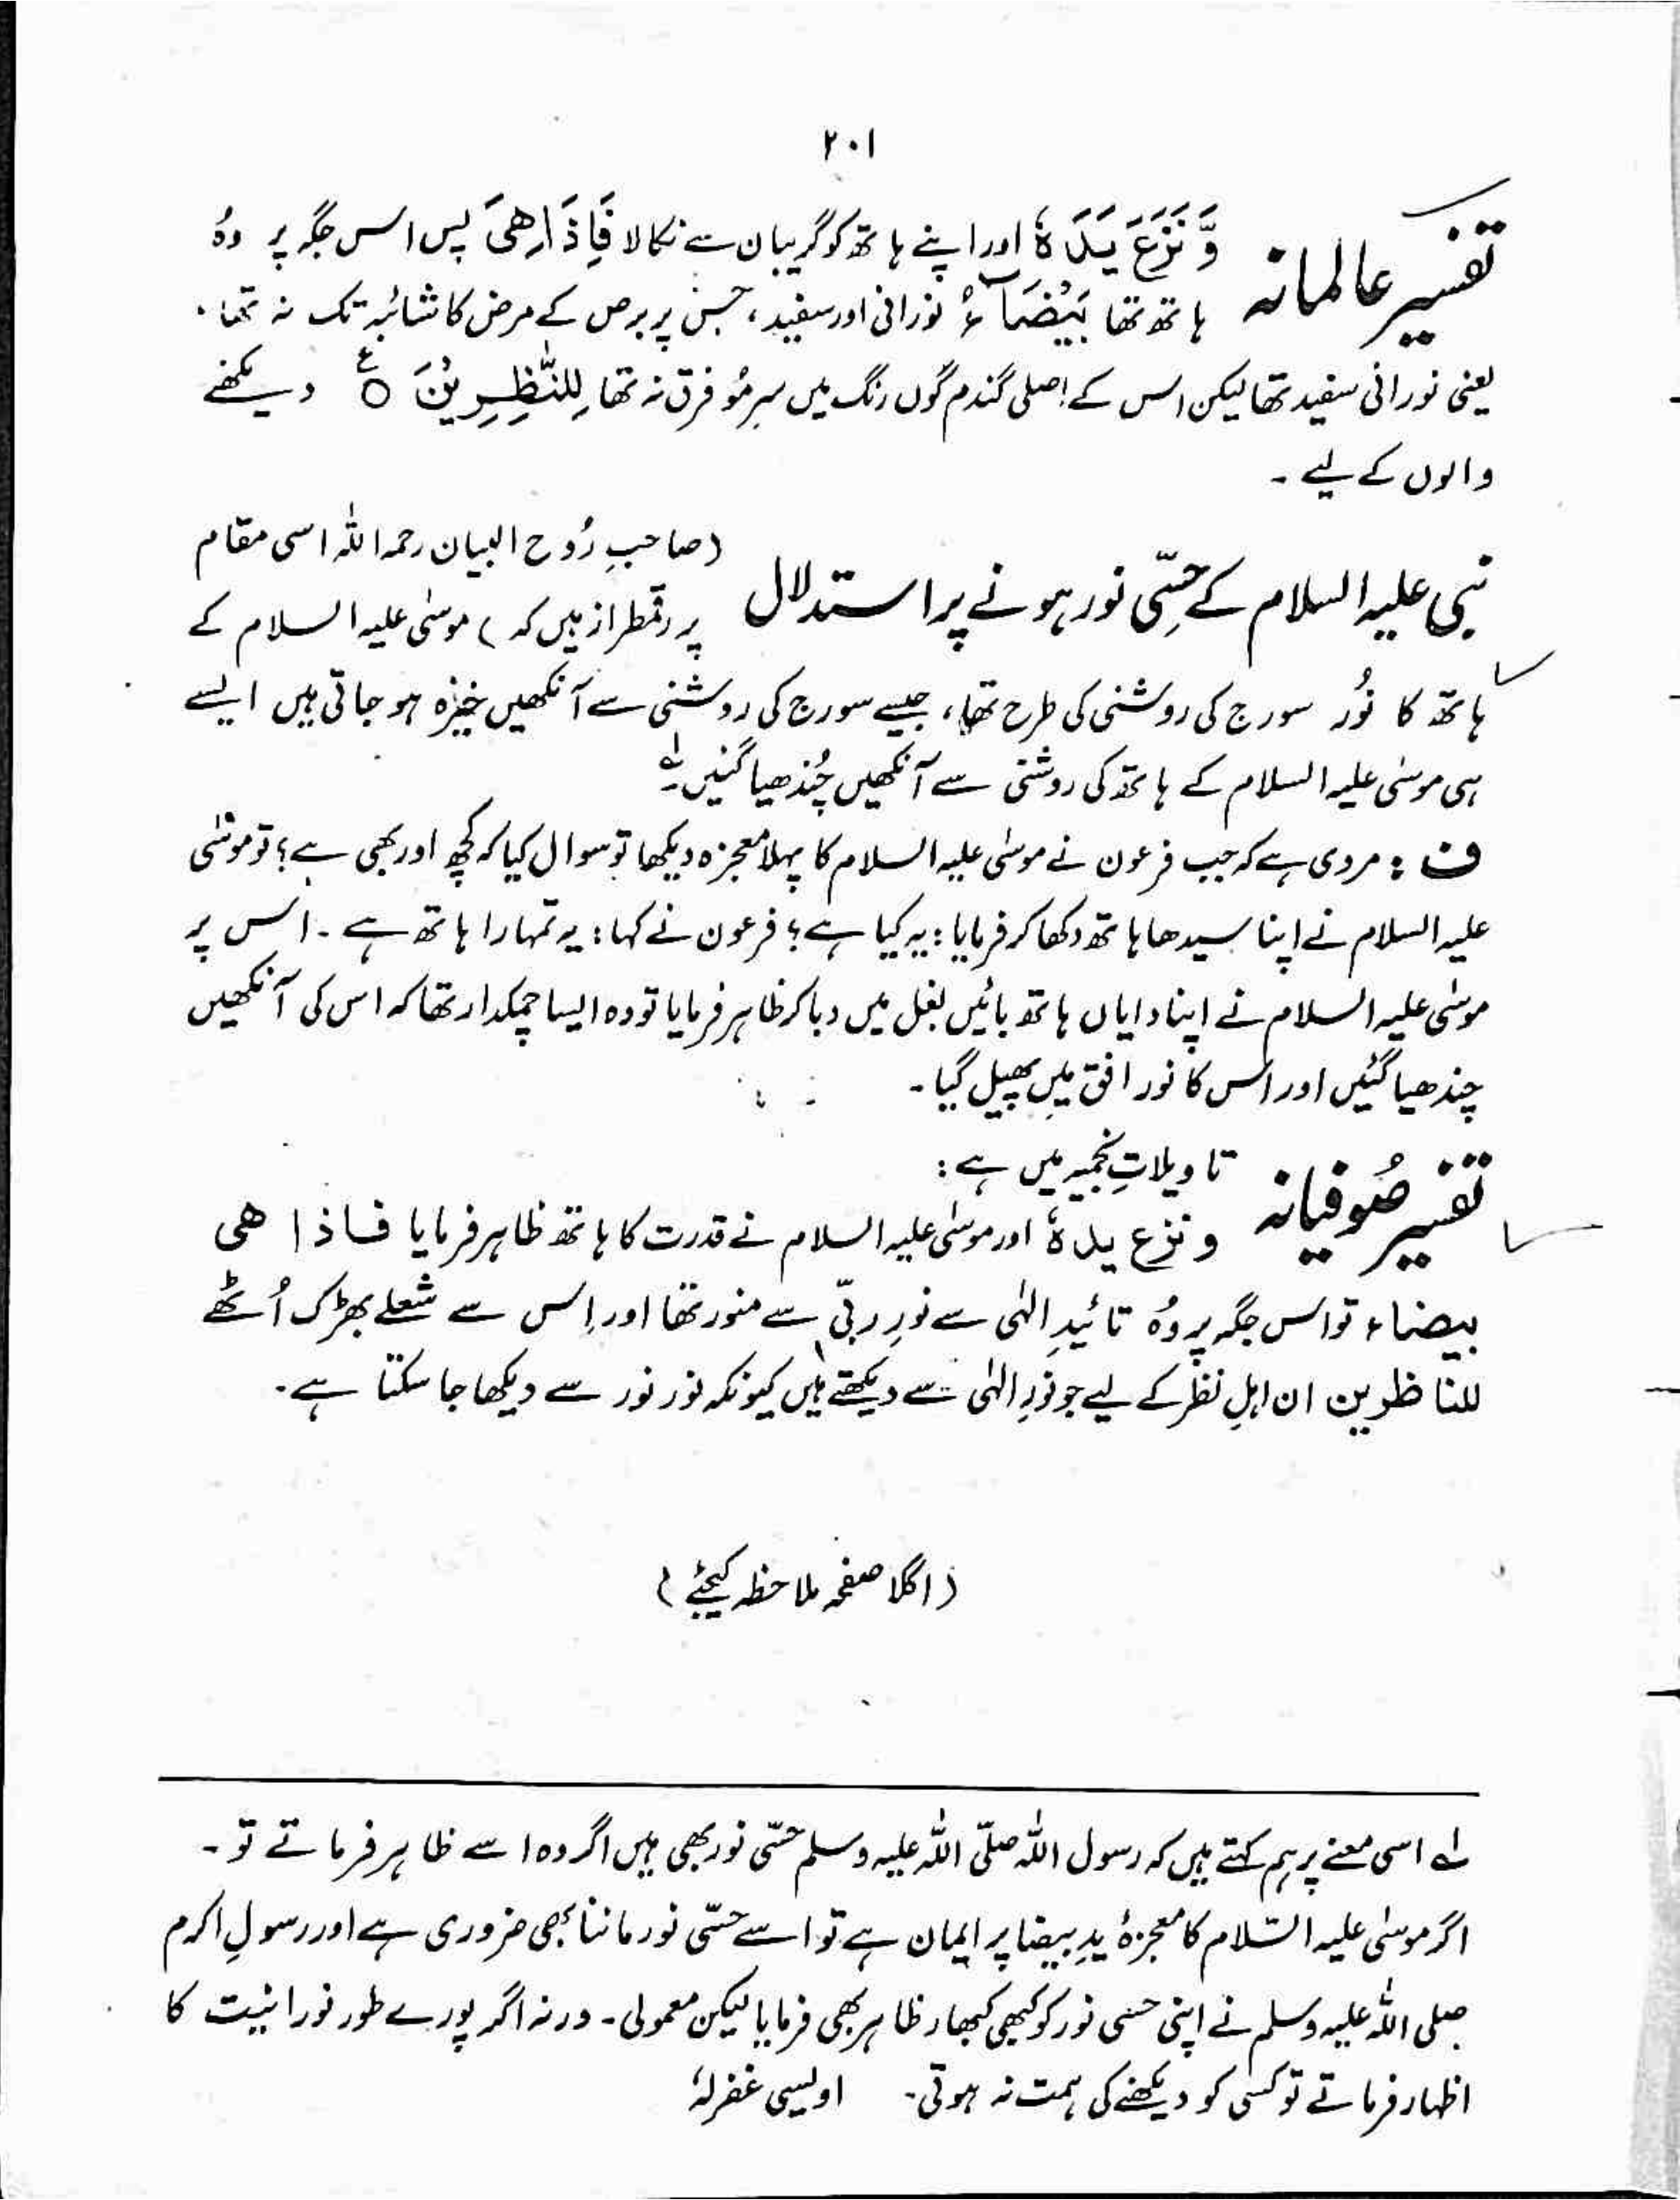 ۲۰۱
تفسیر عالمانہ وَّ نَزَعَ یَدَہٗ اور اپنے ہاتھ کو گریبان سے نکالا فَاِذَا ھِیَ پس اس جگہ پر وہُ
ہاتھ تھا بَیْضَآءُ نورانی اور سفید، جس پر برص کے مرض کا شائبہ تک نہ تھا۔
یعنی نورانی سفید تھا لیکن اس کے اصلی گندم گوں رنگ میں سرِمُو فرق نہ تھا لِلنّٰظِرِیْنَ ○ ع دیکھنے
والوں کے لیے ۔
نبی علیہ السلام کے حِسّی نور ہونے پر استدلال (صاحبِ رُوح البیان رحمہ اللہ اسی مقام
پر رقمطراز ہیں کہ) موسٰی علیہ السلام کے
ہاتھ کا نُور سورج کی روشنی کی طرح تھا، جیسے سورج کی روشنی سے آنکھیں خیزہ ہو جاتی ہیں ایسے
ہی موسٰی علیہ السلام کے ہاتھ کی روشنی سے آنکھیں چُندھیا گئیں۔ لہ
ف : مروی ہے کہ جب فرعون نے موسٰی علیہ السلام کا پہلا معجزہ دیکھا تو سوال کیا کہ کچھ اور بھی ہے؟ تو موسٰی
علیہ السلام نے اپنا سیدھا ہاتھ دکھا کر فرمایا: یہ کیا ہے؟ فرعون نے کہا: یہ تمہارا ہاتھ ہے ۔ اس پر
موسٰی علیہ السلام نے اپنا دایاں ہاتھ بائیں بغل میں دبا کر ظاہر فرمایا تو وہ ایسا چمکدار تھا کہ اس کی آنکھیں
چندھیا گئیں اور اس کا نور افق میں پھیل گیا ۔
تفسیر صُوفیانہ تاویلاتِ نجمیہ میں ہے :
و نزع یدہٗ اور موسٰی علیہ السلام نے قدرت کا ہاتھ ظاہر فرمایا فاذا ھی
بیضاء تو اس جگہ پر وہُ تائیدِ الہٰی سے نورِ ربّی سے منور تھا اور اِس سے شعلے بھڑک اُٹھے
للناظرین ان اہلِ نظر کے لیے جو نورِ الہٰی سے دیکھتے ہیں کیونکہ نور نور سے دیکھا جا سکتا ہے ۔
(اگلا صفحہ ملاحظہ کیجئے)
لہ اسی معنے پر ہم کہتے ہیں کہ رسول اللہ صلّی اللہ علیہ وسلم حسّی نور بھی ہیں اگر وہ اسے ظاہر فرماتے تو ۔
اگر موسٰی علیہ السّلام کا معجزۂ یدِ بیضا پر ایمان ہے تو اسے حسّی نور ماننا بھی ضروری ہے اور رسولِ اکرم
صلی اللہ علیہ وسلم نے اپنی حسی نور کو کبھی کبھار ظاہر بھی فرمایا لیکن معمولی ۔ ورنہ اگر پورے طور نورانیت کا
اظہار فرماتے تو کسی کو دیکھنے کی ہمت نہ ہوتی ۔ اویسی غفرلہٗ